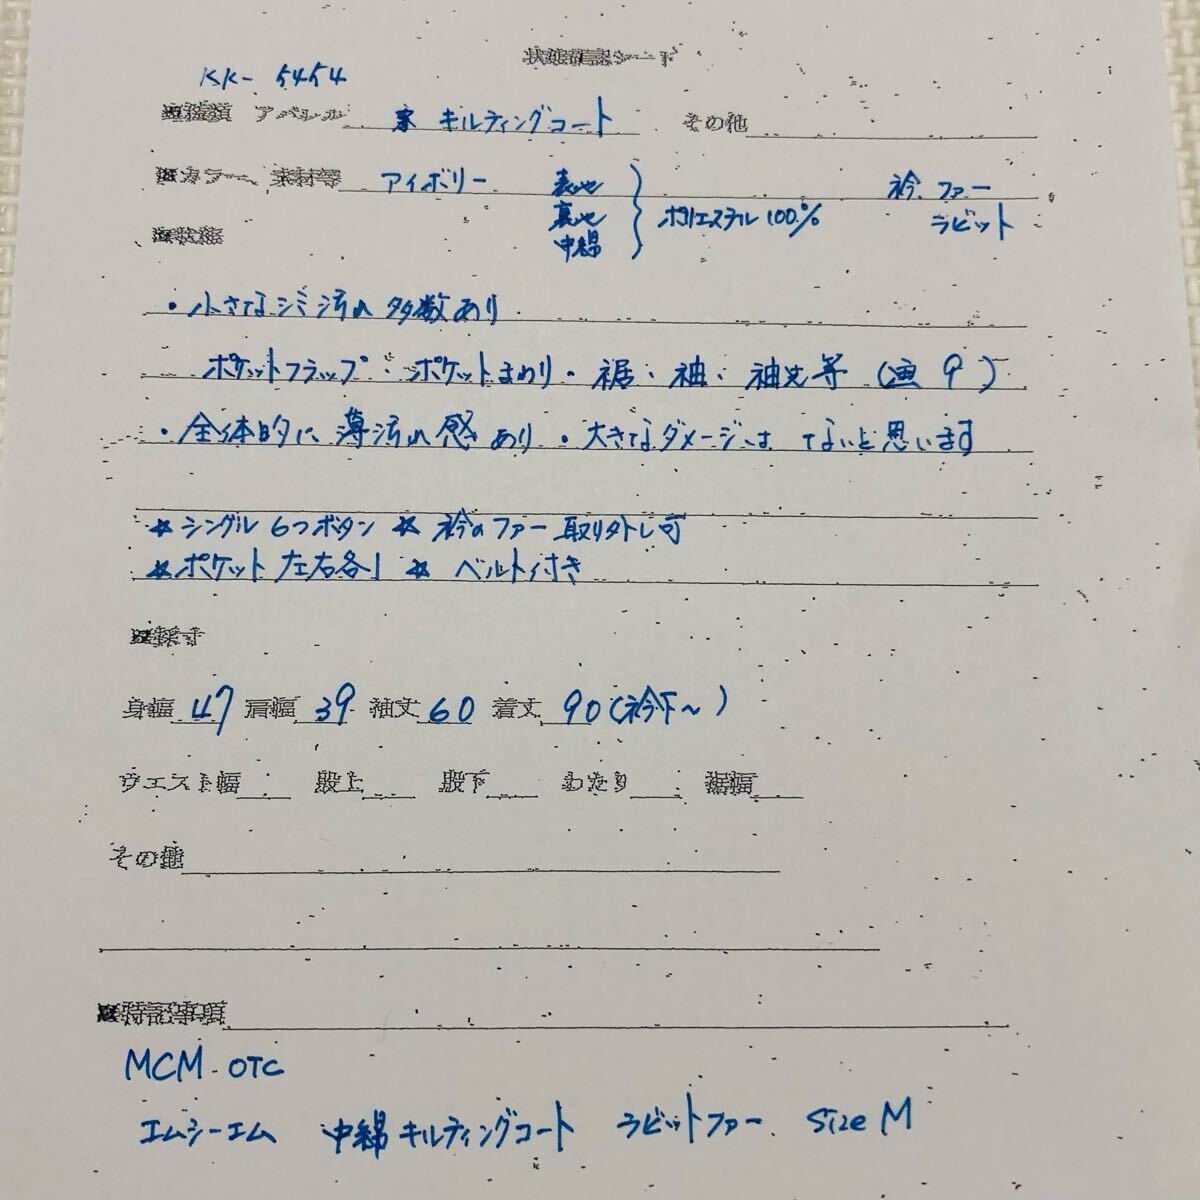 状態確認シート
KK- 5454
■種類 アパレル キルティングコート その他
■カラー、素材等 アイボリー 表地 裏地 中綿 ポリエステル100% 衿 ファー ラビット
■状態
・小さなシミ汚れ多数あり
ポケットフラップ・ポケットまわり・裾・袖・袖先等 (画9)
・全体的に薄汚れ感あり ・大きなダメージはないと思います
☆シングル6つボタン ☆衿のファー取り外し可
☆ポケット左右各1 ☆ベルト付き
■採寸
身幅 47 肩幅 39 袖丈 60 着丈 90(衿下~)
ウエスト幅 股上 股下 わたり 裾幅
その他
■特記事項
MCM OTC
エムシーエム 中綿キルティングコート ラビットファー Size M